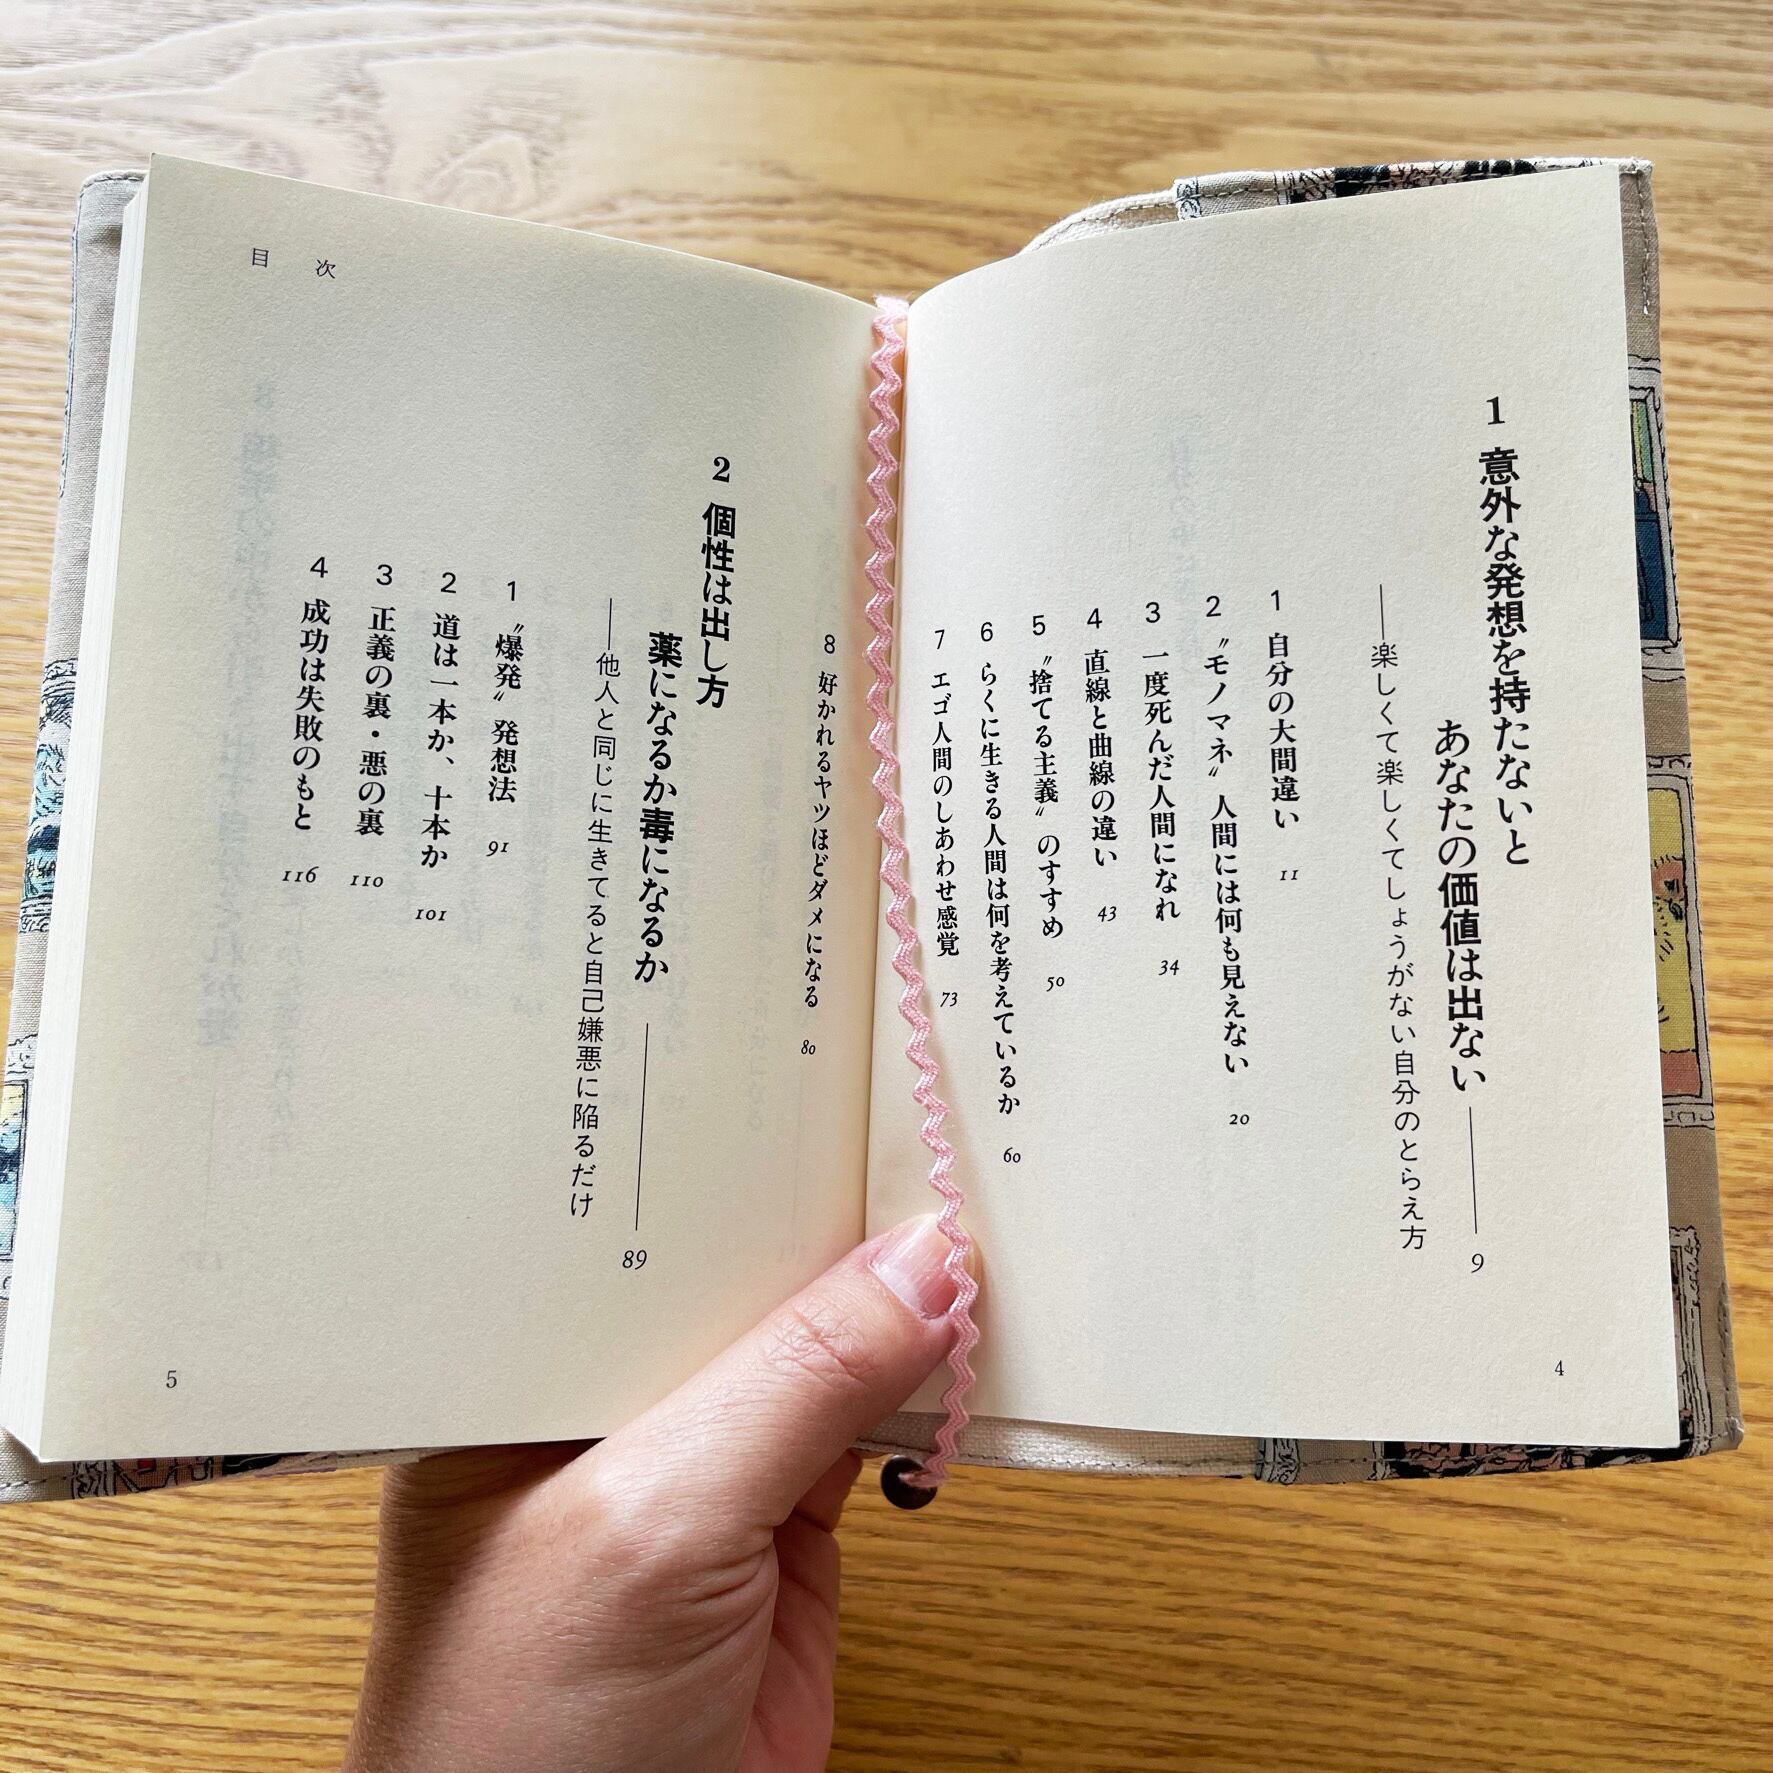 1 意外な発想を持たないと
あなたの価値は出ない 9
──楽しくて楽しくてしょうがない自分のとらえ方
1 自分の大間違い 11
2 〝モノマネ〟人間には何も見えない 20
3 一度死んだ人間になれ 34
4 直線と曲線の違い 43
5 〝捨てる主義〟のすすめ 50
6 らくに生きる人間は何を考えているか 60
7 エゴ人間のしあわせ感覚 73
4
目次
8 好かれるヤツほどダメになる 80
2 個性は出し方
薬になるか毒になるか 89
──他人と同じに生きてると自己嫌悪に陥るだけ
1 〝爆発〟発想法 91
2 道は一本か、十本か 101
3 正義の裏・悪の裏 110
4 成功は失敗のもと 116
5